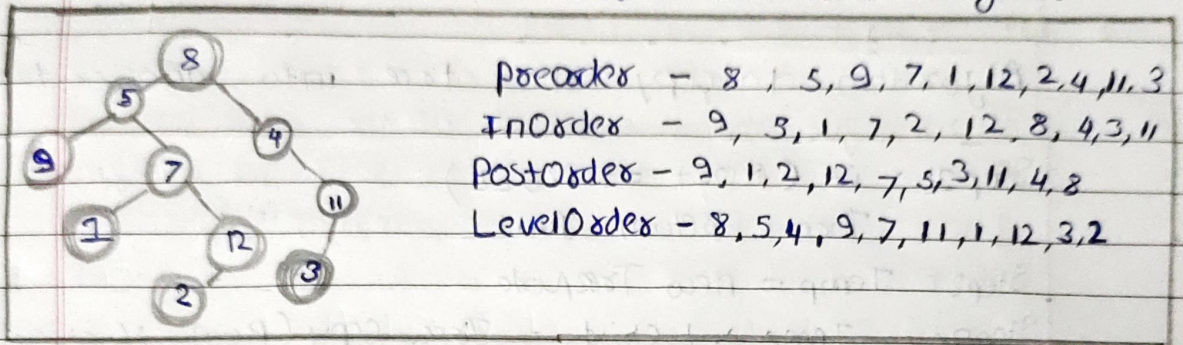 8
5
9
7
4
1
12
11
2
3
Preorder - 8, 5, 9, 7, 1, 12, 2, 4, 11, 3
InOrder - 9, 5, 1, 7, 2, 12, 8, 4, 3, 11
PostOrder - 9, 1, 2, 12, 7, 5, 3, 11, 4, 8
LevelOrder - 8, 5, 4, 9, 7, 11, 1, 12, 3, 2